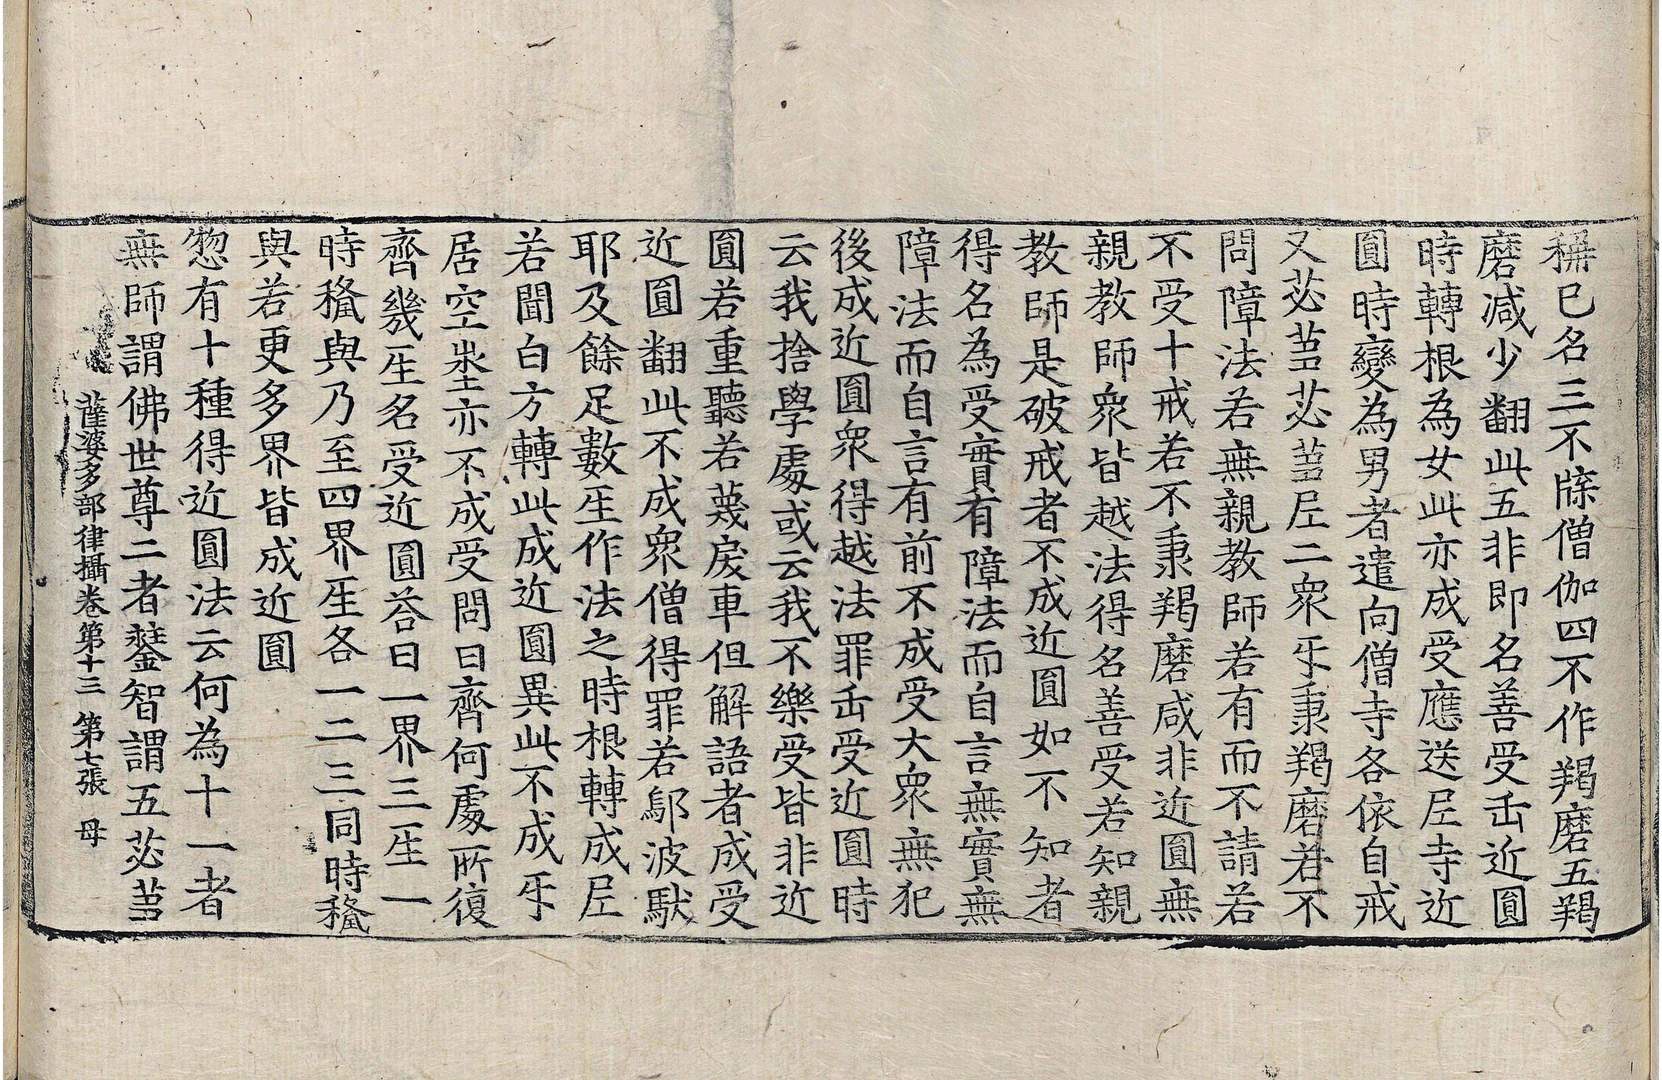 稱已名三不牒僧伽四不作羯磨五羯
磨减少翻此五非即名善受缶近圓
時轉根為女此亦成受應送𡰱寺近
圓時變為男者遣向僧寺各依自戒
又苾芻苾芻𡰱二衆乎秉羯磨若不
問障法若無親教師若有而不請若
不受十戒若不秉羯磨咸非近圓無
親教師衆皆越法得名善受若知親
教師是破戒者不成近圓如不知者
得名為受實有障法而自言無實無
障法而自言有前不成受大衆無犯
後成近圓衆得越法罪缶受近圓時
云我捨學處或云我不樂受皆非近
圓若重聽若蔑戾車但解語者成受
近圓翻此不成衆僧得罪若鄔波馱
耶及餘足數生作法之時根轉成𡰱
若聞白方轉此成近圓異此不成乎
居空坐亦不成受問曰齊何處所復
齊幾生名受近圓荅曰一界三生一
時秪與乃至四界生各一二三同時秪
與若更多界皆成近圓
惣有十種得近圓法云何為十一者
無師謂佛世尊二者鑿智謂五苾芻
薩婆多部律攝卷第十三　第七張　母